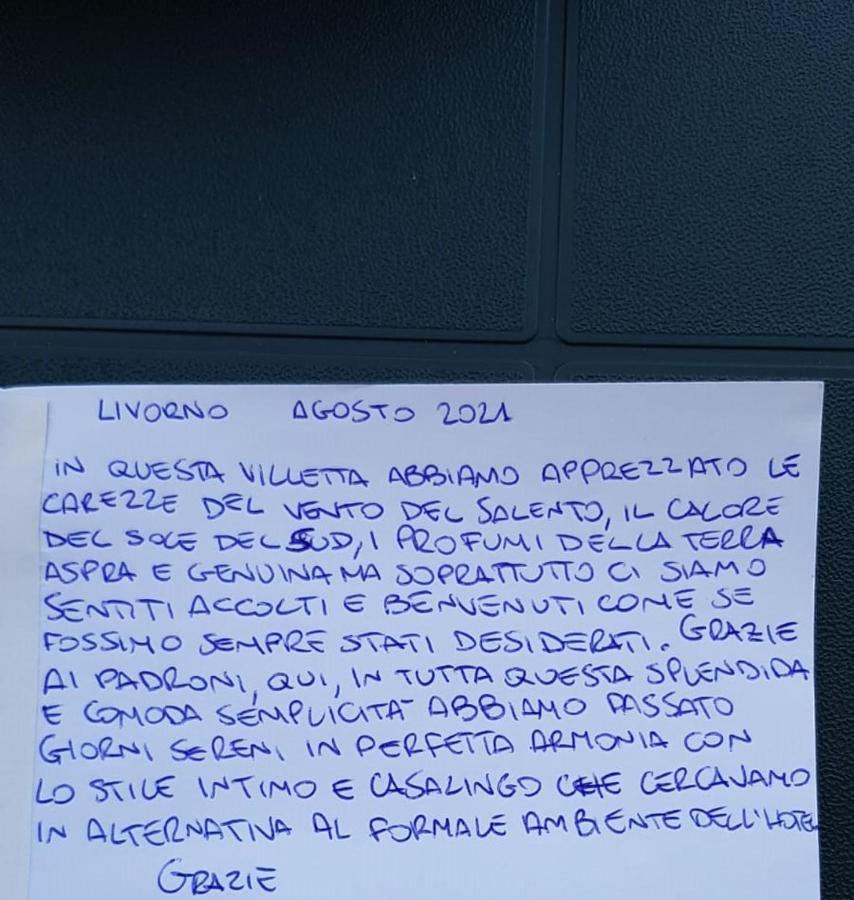 LIVORNO AGOSTO 2021
IN QUESTA VILLETTA ABBIAMO APPREZZATO LE
CAREZZE DEL VENTO DEL SALENTO, IL CALORE
DEL SOLE DEL SUD, I PROFUMI DELLA TERRA
ASPRA E GENUINA MA SOPRATTUTTO CI SIAMO
SENTITI ACCOLTI E BENVENUTI COME SE
FOSSIMO SEMPRE STATI DESIDERATI. GRAZIE
AI PADRONI, QUI, IN TUTTA QUESTA SPLENDIDA
E COMODA SEMPLICITA' ABBIAMO PASSATO
GIORNI SERENI IN PERFETTA ARMONIA CON
LO STILE INTIMO E CASALINGO CHE CERCAVAMO
IN ALTERNATIVA AL FORMALE AMBIENTE DELL'HOTEL
GRAZIE